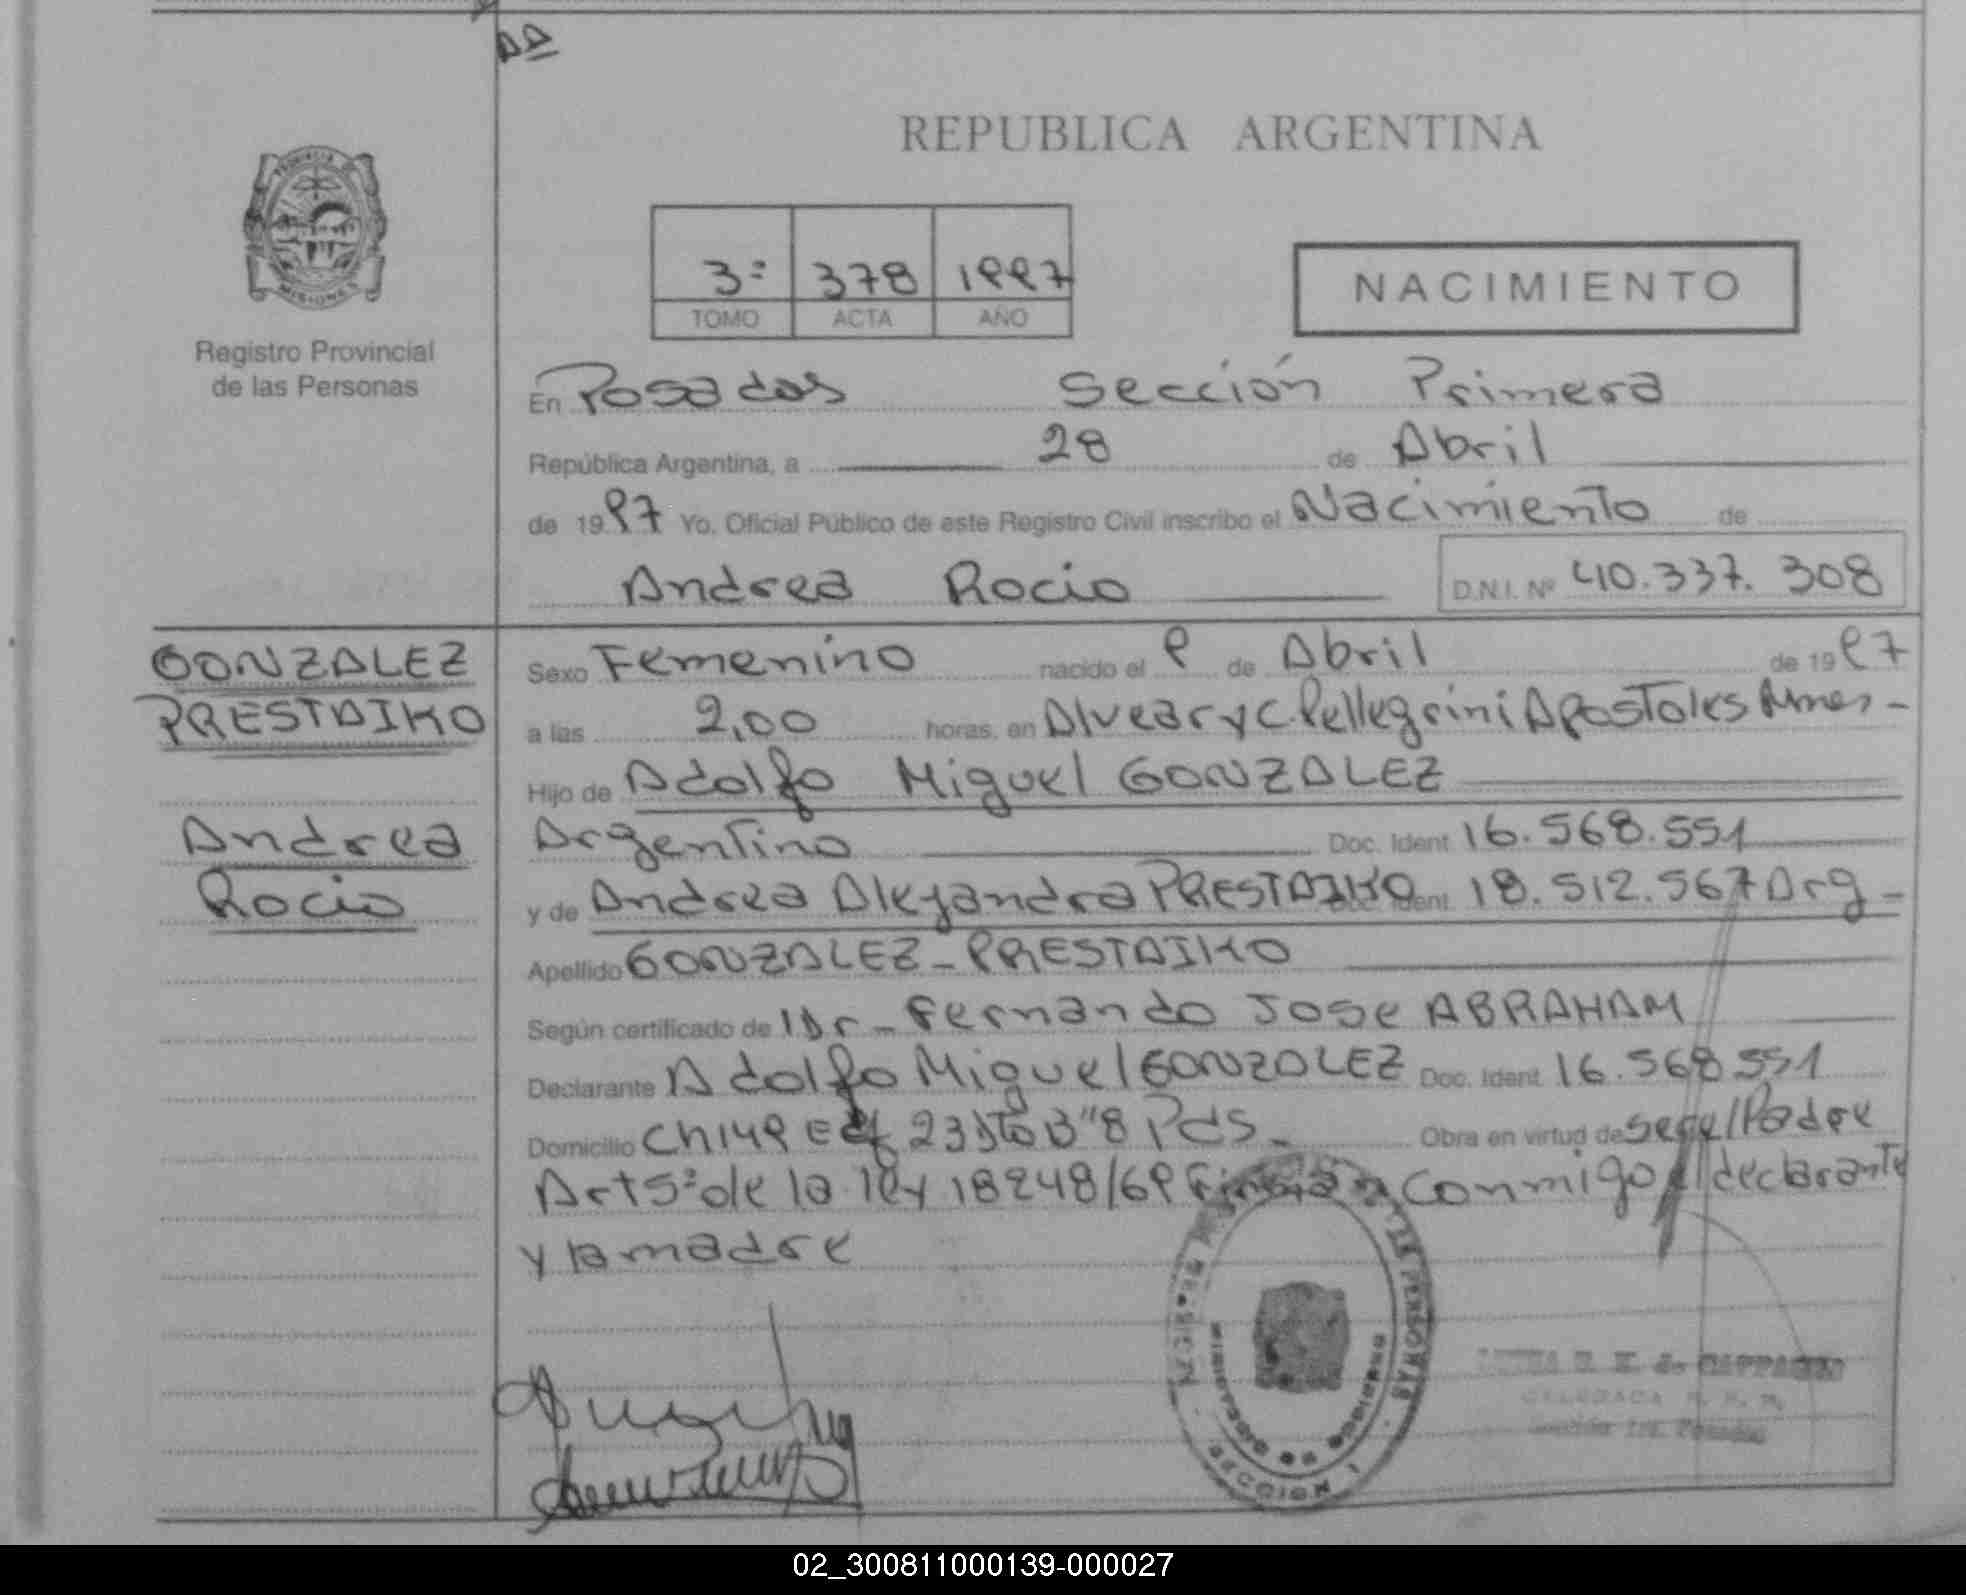 AA
REPUBLICA ARGENTINA
PROVINCIA DE
MISIONES
Registro Provincial
de las Personas
3º 378 1997
TOMO ACTA AÑO
NACIMIENTO
En Posadas Sección Primera
República Argentina, a 28 de Abril
de 1997 Yo, Oficial Público de este Registro Civil inscribo el Nacimiento de
Andrea Rocio D.N.I. Nº 40.337.308
GONZALEZ
PRESTAIKO
Andrea
Rocio
Sexo Femenino nacido el 9 de Abril de 1997
a las 2,00 horas, en Alvear y C. Pellegrini Apostoles Mnes-
Hijo de Adolfo Miguel GONZALEZ
Argentino Doc. Ident 16.568.551
y de Andrea Alejandra PRESTAIKO Doc. Ident 18.512.567 Arg-
Apellido GONZALEZ - PRESTAIKO
Según certificado de Dr - Fernando Jose ABRAHAM
Declarante Adolfo Miguel GONZALEZ Doc. Ident 16.568.551
Domicilio Ch 149 Edf 23 Dto B"8 Pds - Obra en virtud de ser el Padre
Art 5º de la ley 18248/69 Firman Conmigo el declarante
y la madre
DE LAS PERSONAS
SECCION 1
DELEGADA R. P. P.
Sección 1ra. Posadas
02_300811000139-000027